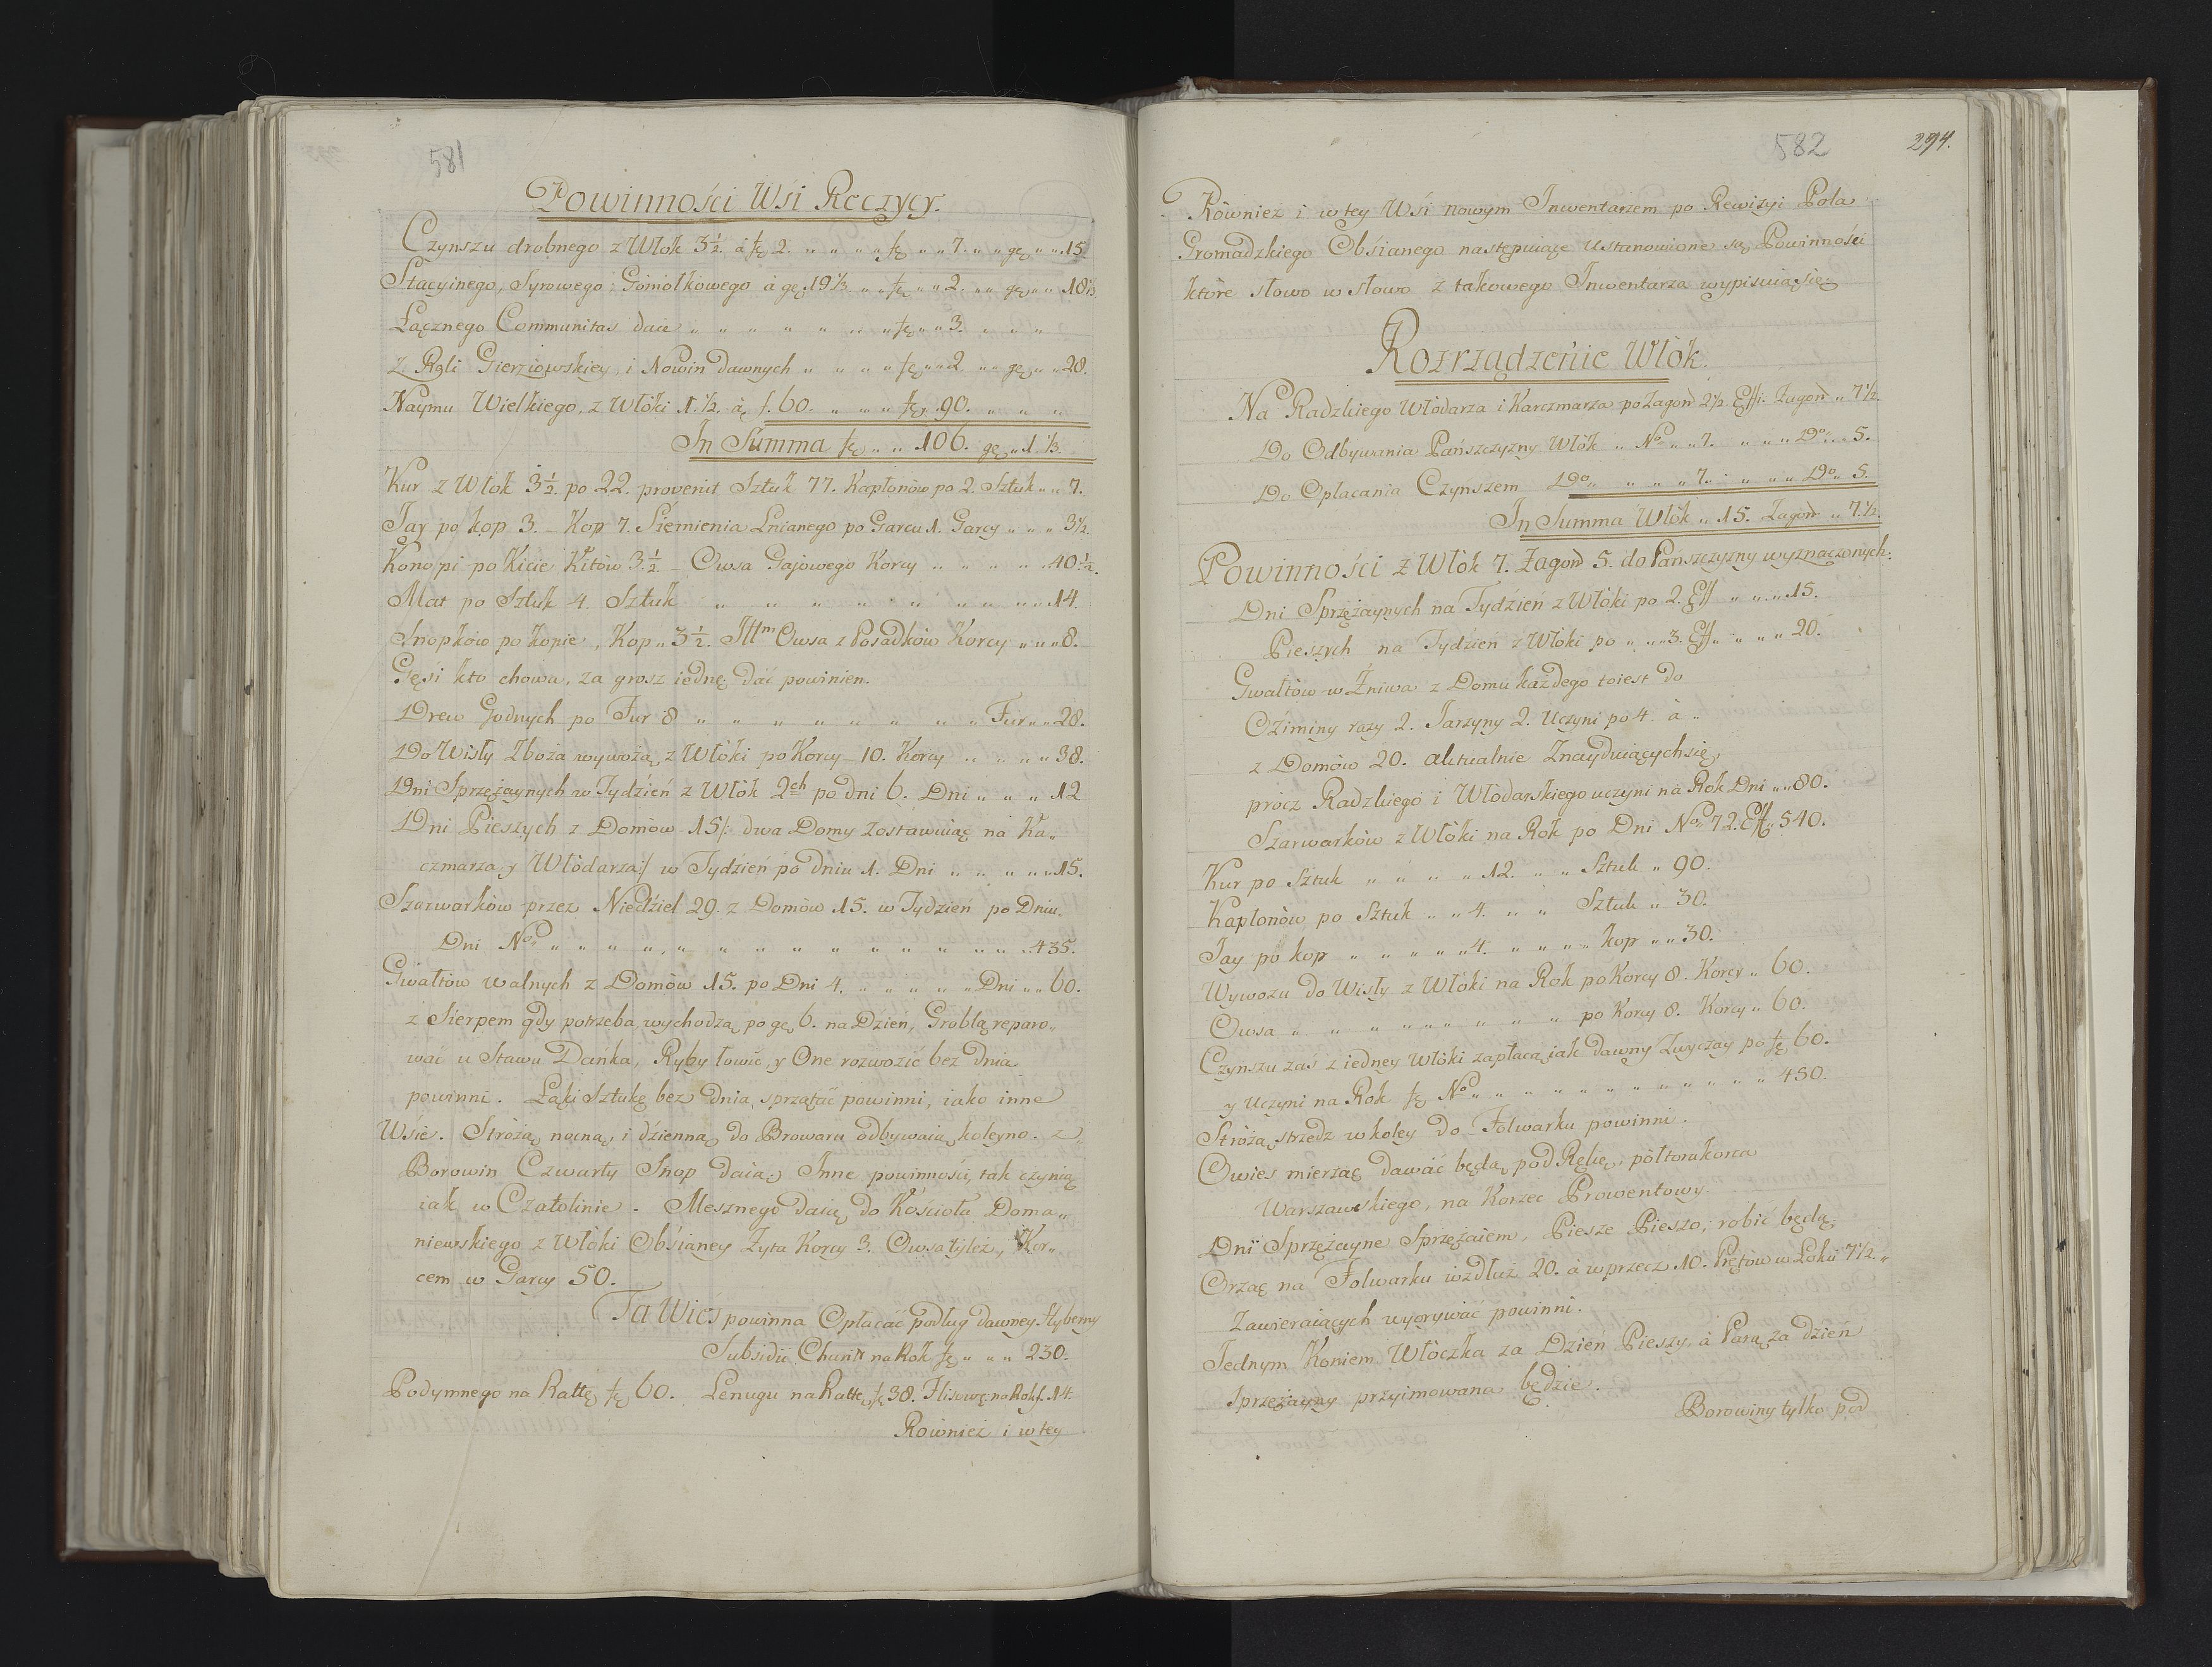 581
Powinności Wsi Rzeczycy.
Czynszu drobnego z Włok 3½. à fl 2. „ „ „ „ fl „ „ 7. „ „ gr „ „ 15.
Stacyinego, Syrowego: Gomołkowego à gr 19⅓. „ „ fl „ „ 2. „ „ gr „ „ 18⅓
Łącznego Communitas daie „ „ „ „ „ „ „ fl „ „ 3. „ „ „
Z Roli Gierziowskiey, i Nowin dawnych „ „ „ „ fl „ „ 2. „ „ gr „ „ 28.
Naymu Wielkiego, z Włóki 1.½. à f. 60. „ „ „ fl „ 90. „ „ „
In Summa fl „ „ 106. gr „ 1⅓.
Kur z Włok 3½. po 22. provenit Sztuk 77. Kapłonów po 2. Sztuk „ „ 7.
Jay po kop 3. _ Kop 7. Siemienia Lnianego po Garcu 1. Garcy „ „ „ 3½.
Konopi po Kicie Kitów 3½. _ Owsa Gajowego Korcy „ „ „ „ „ 40½.
Mat po Sztuk 4. Sztuk „ „ „ „ „ „ „ „ „ 14.
Snopków po kopie, Kop „ 3½. Ittm Owsa z Posadków Korcy „ „ „ 8.
Gęsi kto chowa, za grosz iednę dać powinien.
Drew Godnych po Fur 8 „ „ „ „ „ „ „ „ Fur „ „ 28.
Do Wisły Zboża wywożą z Włóki po Korcy _ 10. Korcy „ „ „ „ 38.
Dni Sprzężaynych w Tydzień z Włók 2ch po dni 6. Dni „ „ „ 12
Dni Pieszych z Domow 15/: dwa Domy zostawuiąc na Ka„
czmarza y Włodarza:/ w Tydzień po dniu 1. Dni „ „ „ „ „ 15.
Szarwarków przez Niedziel 29. z Domów 15. w Tydzień po Dniu.
Dni No „ „ „ „ „ „ „ „ „ „ „ „ „ „ „ 435.
Gwałtów walnych z Domów 15. po Dni 4. „ „ „ „ „ Dni „ „ 60.
z Sierpem gdy potrzeba, wychodzą po gr 6. na Dzień, Groblą reparo„
wać u Stawu Dańka, Ryby łowić, y One rozwozić bez dnia
powinni. Łąki Sztukę bez dnia sprzątać powinni, iako inne
Wsie. Strożą nocną, i dzienną do Browaru odbywaią koleyno. z
Borowin Czwarty Snop daią, Inne powinności, tak czynią
iak w Czatolinie. Mesznego daią do Kościoła Doma„
niewskiego z Włóki Obsianey Żyta Korcy 3. Owsa tyleż, Kor„
cem w Garcy 50.
Ta Wieś powinna Opłacać podług dawney Hyberny
Subsidii Charit na Rok fl „ „ „ 230.
Podymnego na Rattę fl 60. Lenugu na Rattę fl 38. Flisowe na Rok f. 14.
Rownież i w tey
582
294.
Rownież i w tey Wsi nowym Inwentarzem po Rewizyi Pola
Gromadzkiego Obsianego następuiące ustanowione są Powinności
które słowo w słowo z takowego Inwentarza wypisuią się.
Rozrządzenie Włok.
Na Radzkiego Włodarza i Karczmarza po Zagon 2½. Effi. Zagon „ 7½.
Do Odbywania Pańszczyzny Włók „ No „ „ 7. „ „ „ Do „ 5.
Do Opłacania Czynszem Do „ „ „ „ 7. „ „ „ Do „ 5.
In Summa Włok „ 15. Zagon „ 7½.
Powinności z Włók 7. Zagon 5. do Pańszczyzny wyznaczonych.
Dni Sprzężaynych na Tydzień z Włóki po 2. Eff „ „ „ 15.
Pieszych na Tydzień z Włóki po „ „ „ 3. Eff „ „ „ „ 20.
Gwałtów w Żniwa z Domu każdego toiest do
Oziminy razy 2. Jarzyny 2. Uczyni po 4. à „
z Domów 20. aktualnie Znayduiących się,
prócz Radzkiego i Włodarskiego uczyni na Rok Dni „ „ 80.
Szarwarków z Włóki na Rok po Dni No 72. Eff „ 540.
Kur po Sztuk „ „ „ „ 12. „ „ Sztuk „ 90.
Kapłonów po Sztuk „ „ 4. „ „ Sztuk „ 30.
Jay po kop „ „ „ „ „ 4. „ „ „ „ kop „ „ 30.
Wywozu do Wisły z Włóki na Rok po Korcy 8. Korcy „ 60.
Owsa „ „ „ „ „ „ „ „ „ po Korcy 8. Korcy „ 60.
Czynszu zaś z iedney Włóki zapłacą iak dawny Zwyczay po fl 60.
y Uczyni na Rok fl No „ „ „ „ „ „ „ „ „ „ „ 450.
Strożą strzedz w koley do Folwarku powinni.
Owies mierząc dawać będą, pod Rękę, półtorakorca
Warszawskiego, na Korzec Prowentowy.
Dni Sprzężayne Sprzężaiem, Piesze Pieszo, robić będą.
Orząc na Folwarku wzdłuż 20. a wprzecz 10. Prętow w Łoku 7½ „
Zawieraiących wyorywać powinni.
Jednym Koniem Włóczka za Dzień Pieszy, a Parą za dzień
Sprzężayny przyimowana będzie.
Borowiny tylko pod